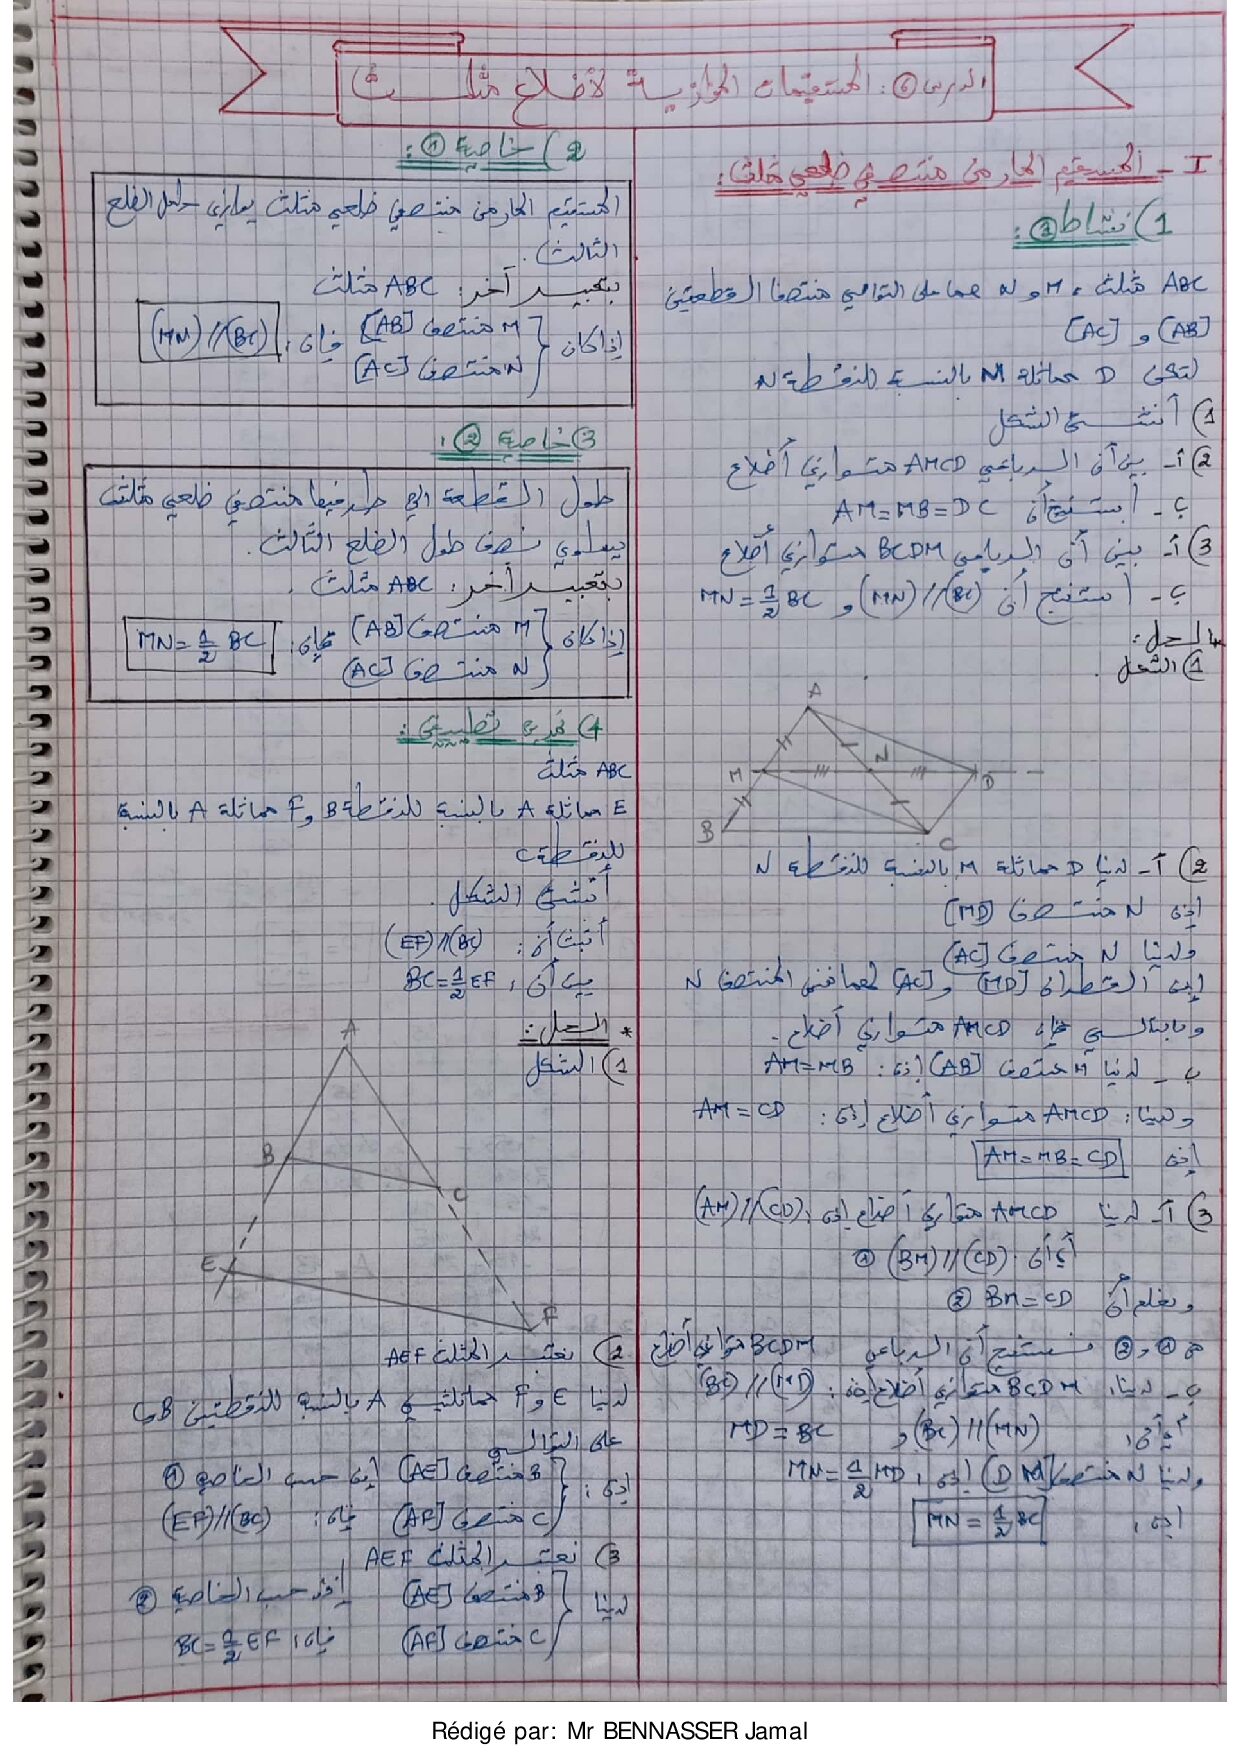 الدرس 6: المستقيمات الموازية لأضلاع مثلث
I - المستقيم المار من منتصفي ضلعي مثلث:
1) نشاط 1:
ABC مثلث، M و N هما على التوالي منتصفا القطعتين
[AB] و [AC]
لتكن D مماثلة M بالنسبة للنقطة N
1) أنشئ الشكل
2) أ- بين أن الرباعي AMCD متوازي أضلاع
ب - استنتج أن AM=MB=DC
3) أ- بين أن الرباعي BCDM متوازي أضلاع
ب - استنتج أن (MN)//(BC) و MN=1/2 BC
* الحل:
1) الشكل
A
M N D
B C
2) أ- لدينا D مماثلة M بالنسبة للنقطة N
إذن N منتصف [MD]
ولدينا N منتصف [AC]
إذن القطران [MD] و [AC] لهما نفس المنتصف N
وبالتالي فإن AMCD متوازي أضلاع.
ب - لدينا M منتصف [AB] إذن: AM=MB
ولدينا: AMCD متوازي أضلاع إذن: AM=CD
إذن AM=MB=CD
3) أ- لدينا AMCD متوازي أضلاع إذن: (AM)//(CD)
أي أن: (BM)//(CD) 1
ونعلم أن BM=CD 2
من 1 و 2 نستنتج أن الرباعي BCDM متوازي أضلاع
ب - لدينا: BCDM متوازي أضلاع إذن: (BC)//(MD)
أي أن: (BC)//(MN) و MD=BC
ولدينا N منتصف [DM] إذن: MN=1/2 MD
إذن: MN=1/2 BC
2) خاصية 1:
المستقيم المار من منتصفي ضلعي مثلث يوازي حامل الضلع
الثالث.
بتعبير آخر: ABC مثلث
إذا كان { M منتصف [AB] فإن: (MN)//(BC)
N منتصف [AC]
3) خاصية 2:
طول القطعة التي طرفيها منتصفي ضلعي مثلث
يساوي نصف طول الضلع الثالث.
بتعبير آخر: ABC مثلث.
إذا كان { M منتصف [AB] فإن: MN=1/2 BC
N منتصف [AC]
4) تمرين تطبيقي:
ABC مثلث
E مماثلة A بالنسبة للنقطة B و F مماثلة A بالنسبة
للنقطة C
أنشئ الشكل.
أثبت أن: (EF)//(BC)
بين أن: BC=1/2 EF
* الحل:
1) الشكل
A
B C
E F
2) نعتبر المثلث AEF
لدينا E و F مماثلتي A بالنسبة للنقطتين B و C
على التوالي
إذن: { B منتصف [AE] إذن حسب الخاصية 1
C منتصف [AF] فإن: (EF)//(BC)
3) نعتبر المثلث AEF
لدينا { B منتصف [AE] إذن حسب الخاصية 2
C منتصف [AF] فإن: BC=1/2 EF
Rédigé par: Mr BENNASSER Jamal